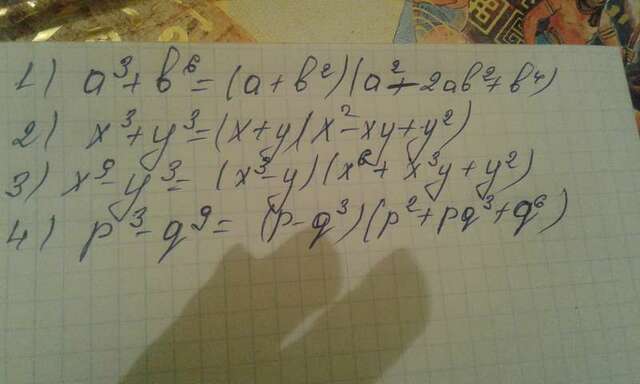 1) a³+b⁶=(a+b²)(a²-2ab²+b⁴)
2) x³+y³=(x+y)(x²-xy+y²)
3) x⁹-y³=(x³-y)(x⁶+x³y+y²)
4) p³-q⁹=(p-q³)(p²+pq³+q⁶)